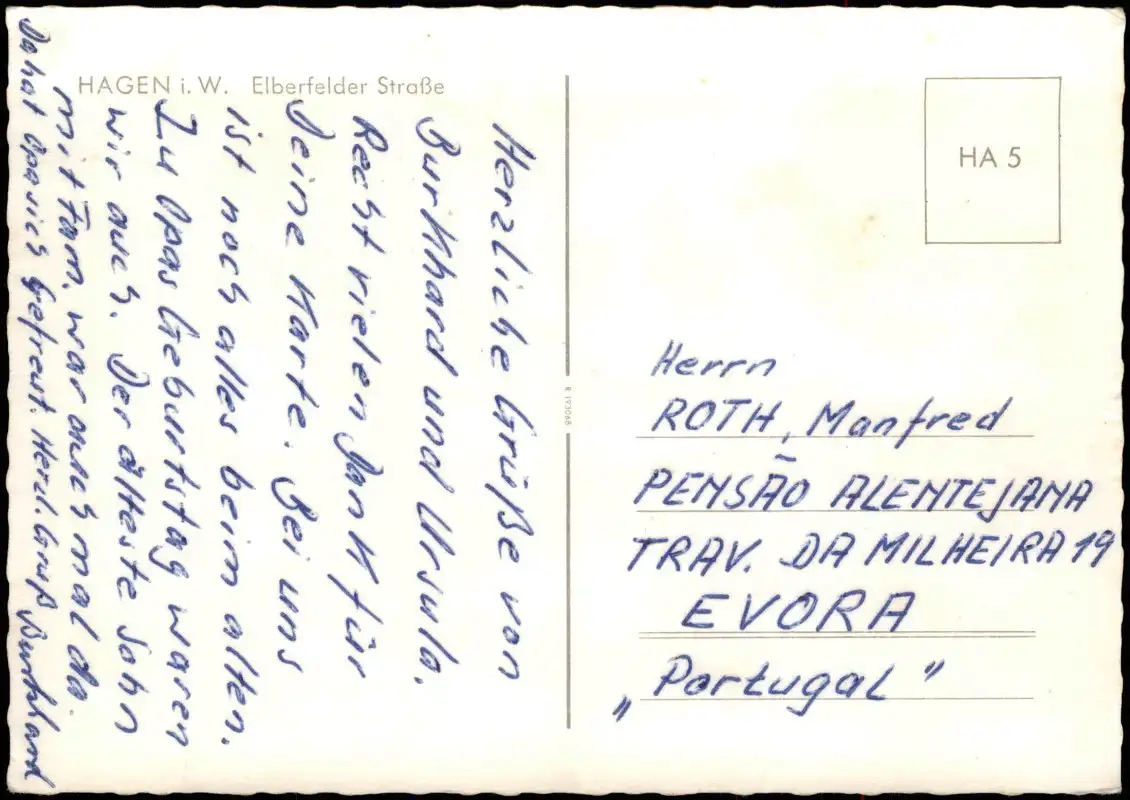 HAGEN i. W. Elberfelder Straße
Herzliche Grüße von
Burkhard und Ursula.
Recht vielen Dank für
Deine Karte. Bei uns
ist noch alles beim alten.
Zu Opas Geburtstag waren
wir auch. Der älteste Sohn
mit Fam. war auch mal da.
Da hat Opa sich gefreut. Herzl. Gruß Burkhard
R 193068
HA 5
Herrn
ROTH, Manfred
PENSÃO ALENTEJANA
TRAV. DA MILHEIRA 19
EVORA
„Portugal"